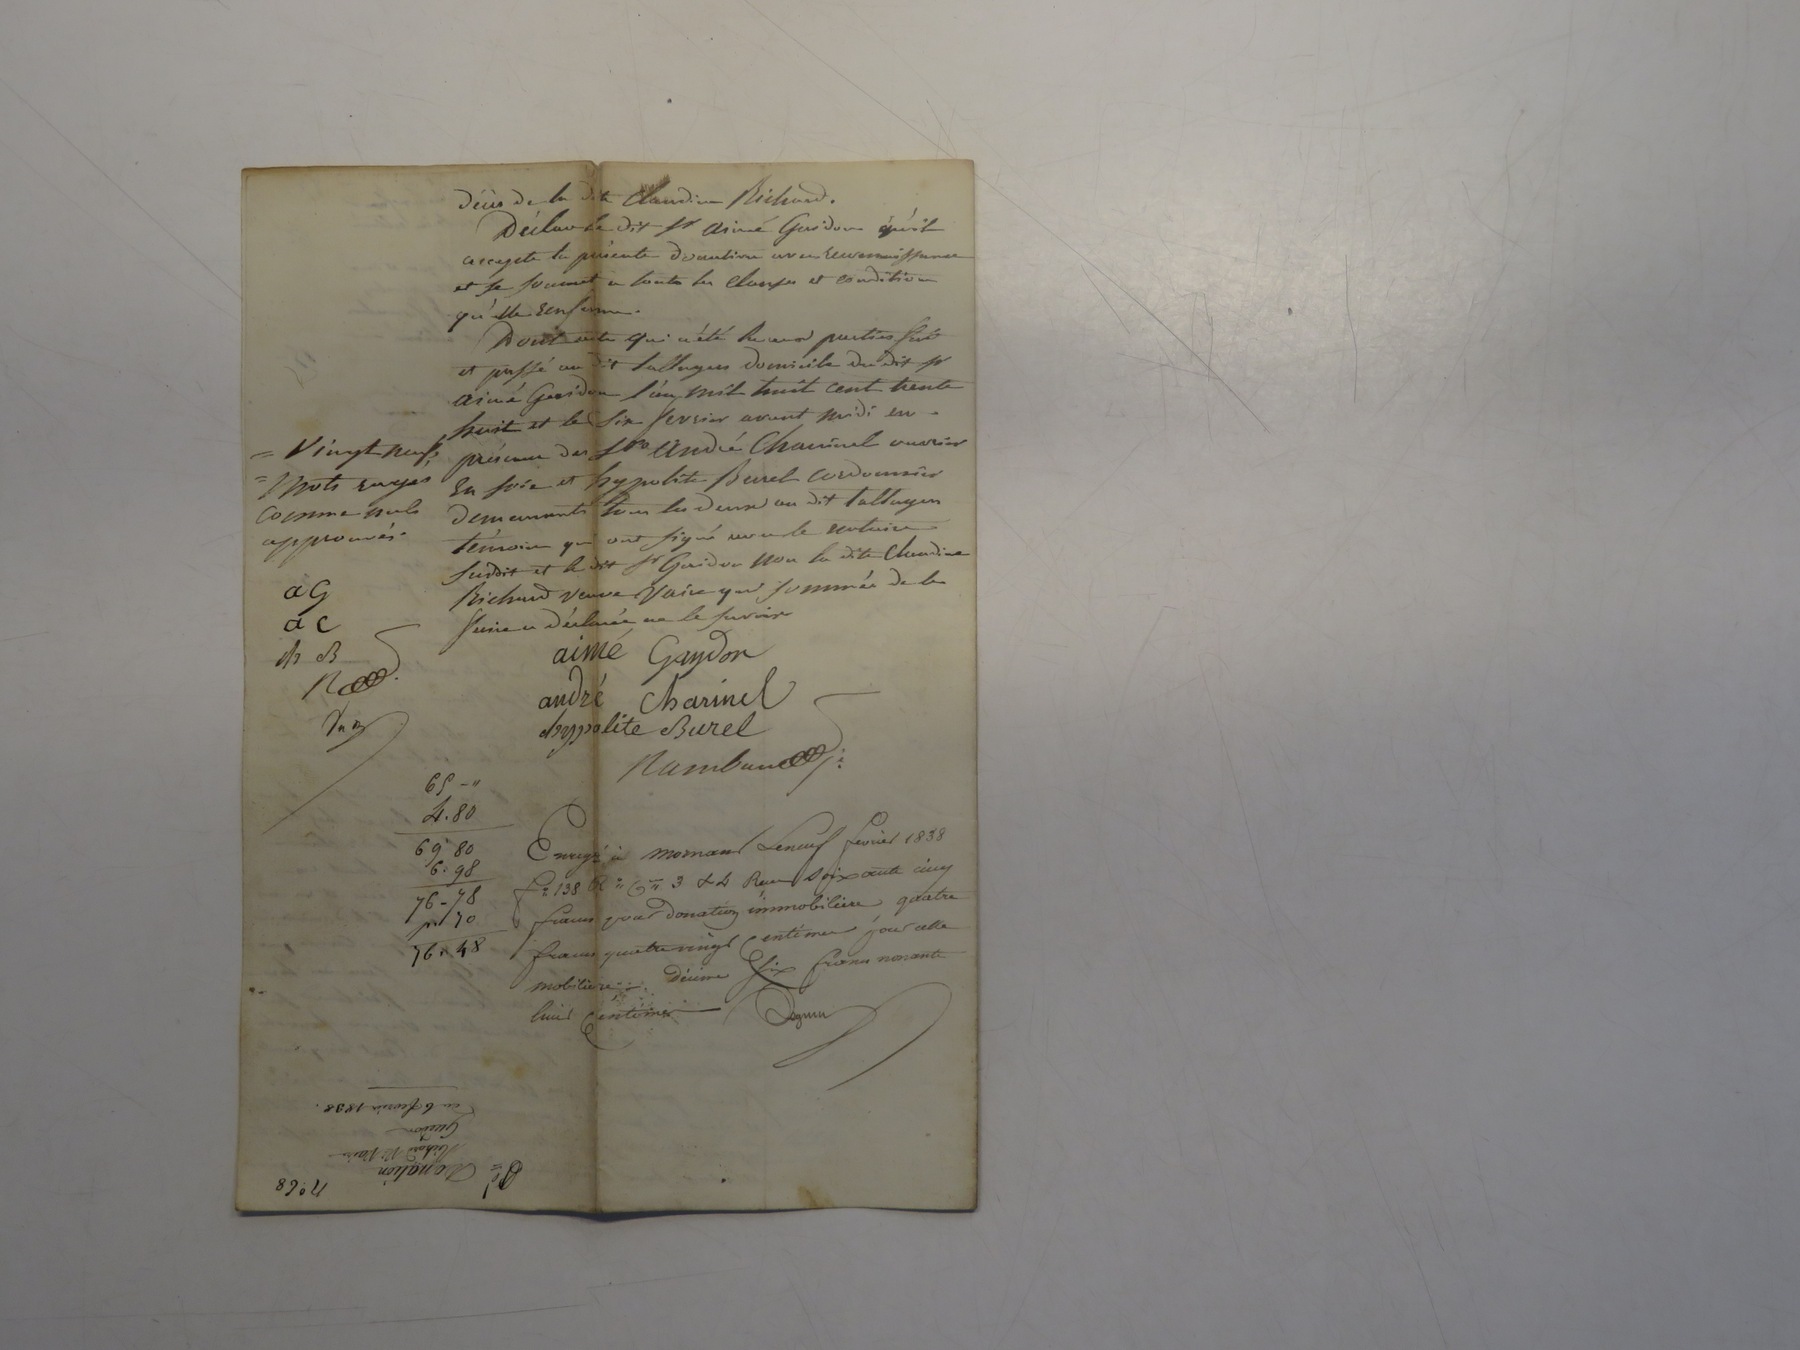 décès de la dite Claudine Richard.
Déclare le dit Sr Aimé Guidon qu'il
accepte la présente donation avec reconnaissance
et se soumet a toutes les clauses et conditions
qu'elle renferme.
Dont acte qui a été lu aux parties fait
et passé au dit talluyers domicile du dit Sr
aimé Guidon l'an mil huit cent trente
huit et le six fevrier avant midi en
présence des Srs André Charinel ouvrier
en soie et hypolite Burel cordonnier
demeurants tous les deux au dit talluyers
témoins qui ont signé avec le notaire
susdit et le dit Sr Guidon non la dite Claudine
Richard veuve Vaire qui sommée de le
faire a déclarée ne le savoir
= Vingt neuf
= Mots rayés
comme nuls
approuvés.
a G
a C
h B
aimé Gaydon
andré Charinel
hyppolite Burel
65 - "
4.80
69 80
6.98
76-78
30
76.48
Enregé à mornant le neuf fevrier 1838
fo 138 Ro Cses 3 & 4 Reçu soixante cinq
francs pour donation immobilière quatre
francs quatre vingt Centimes pour celle
mobilière. Décime Six francs nonante
huit Centimes
No 68
Donation
Richard Ve Vaire
Guidon
Du 6 fevrier 1838.